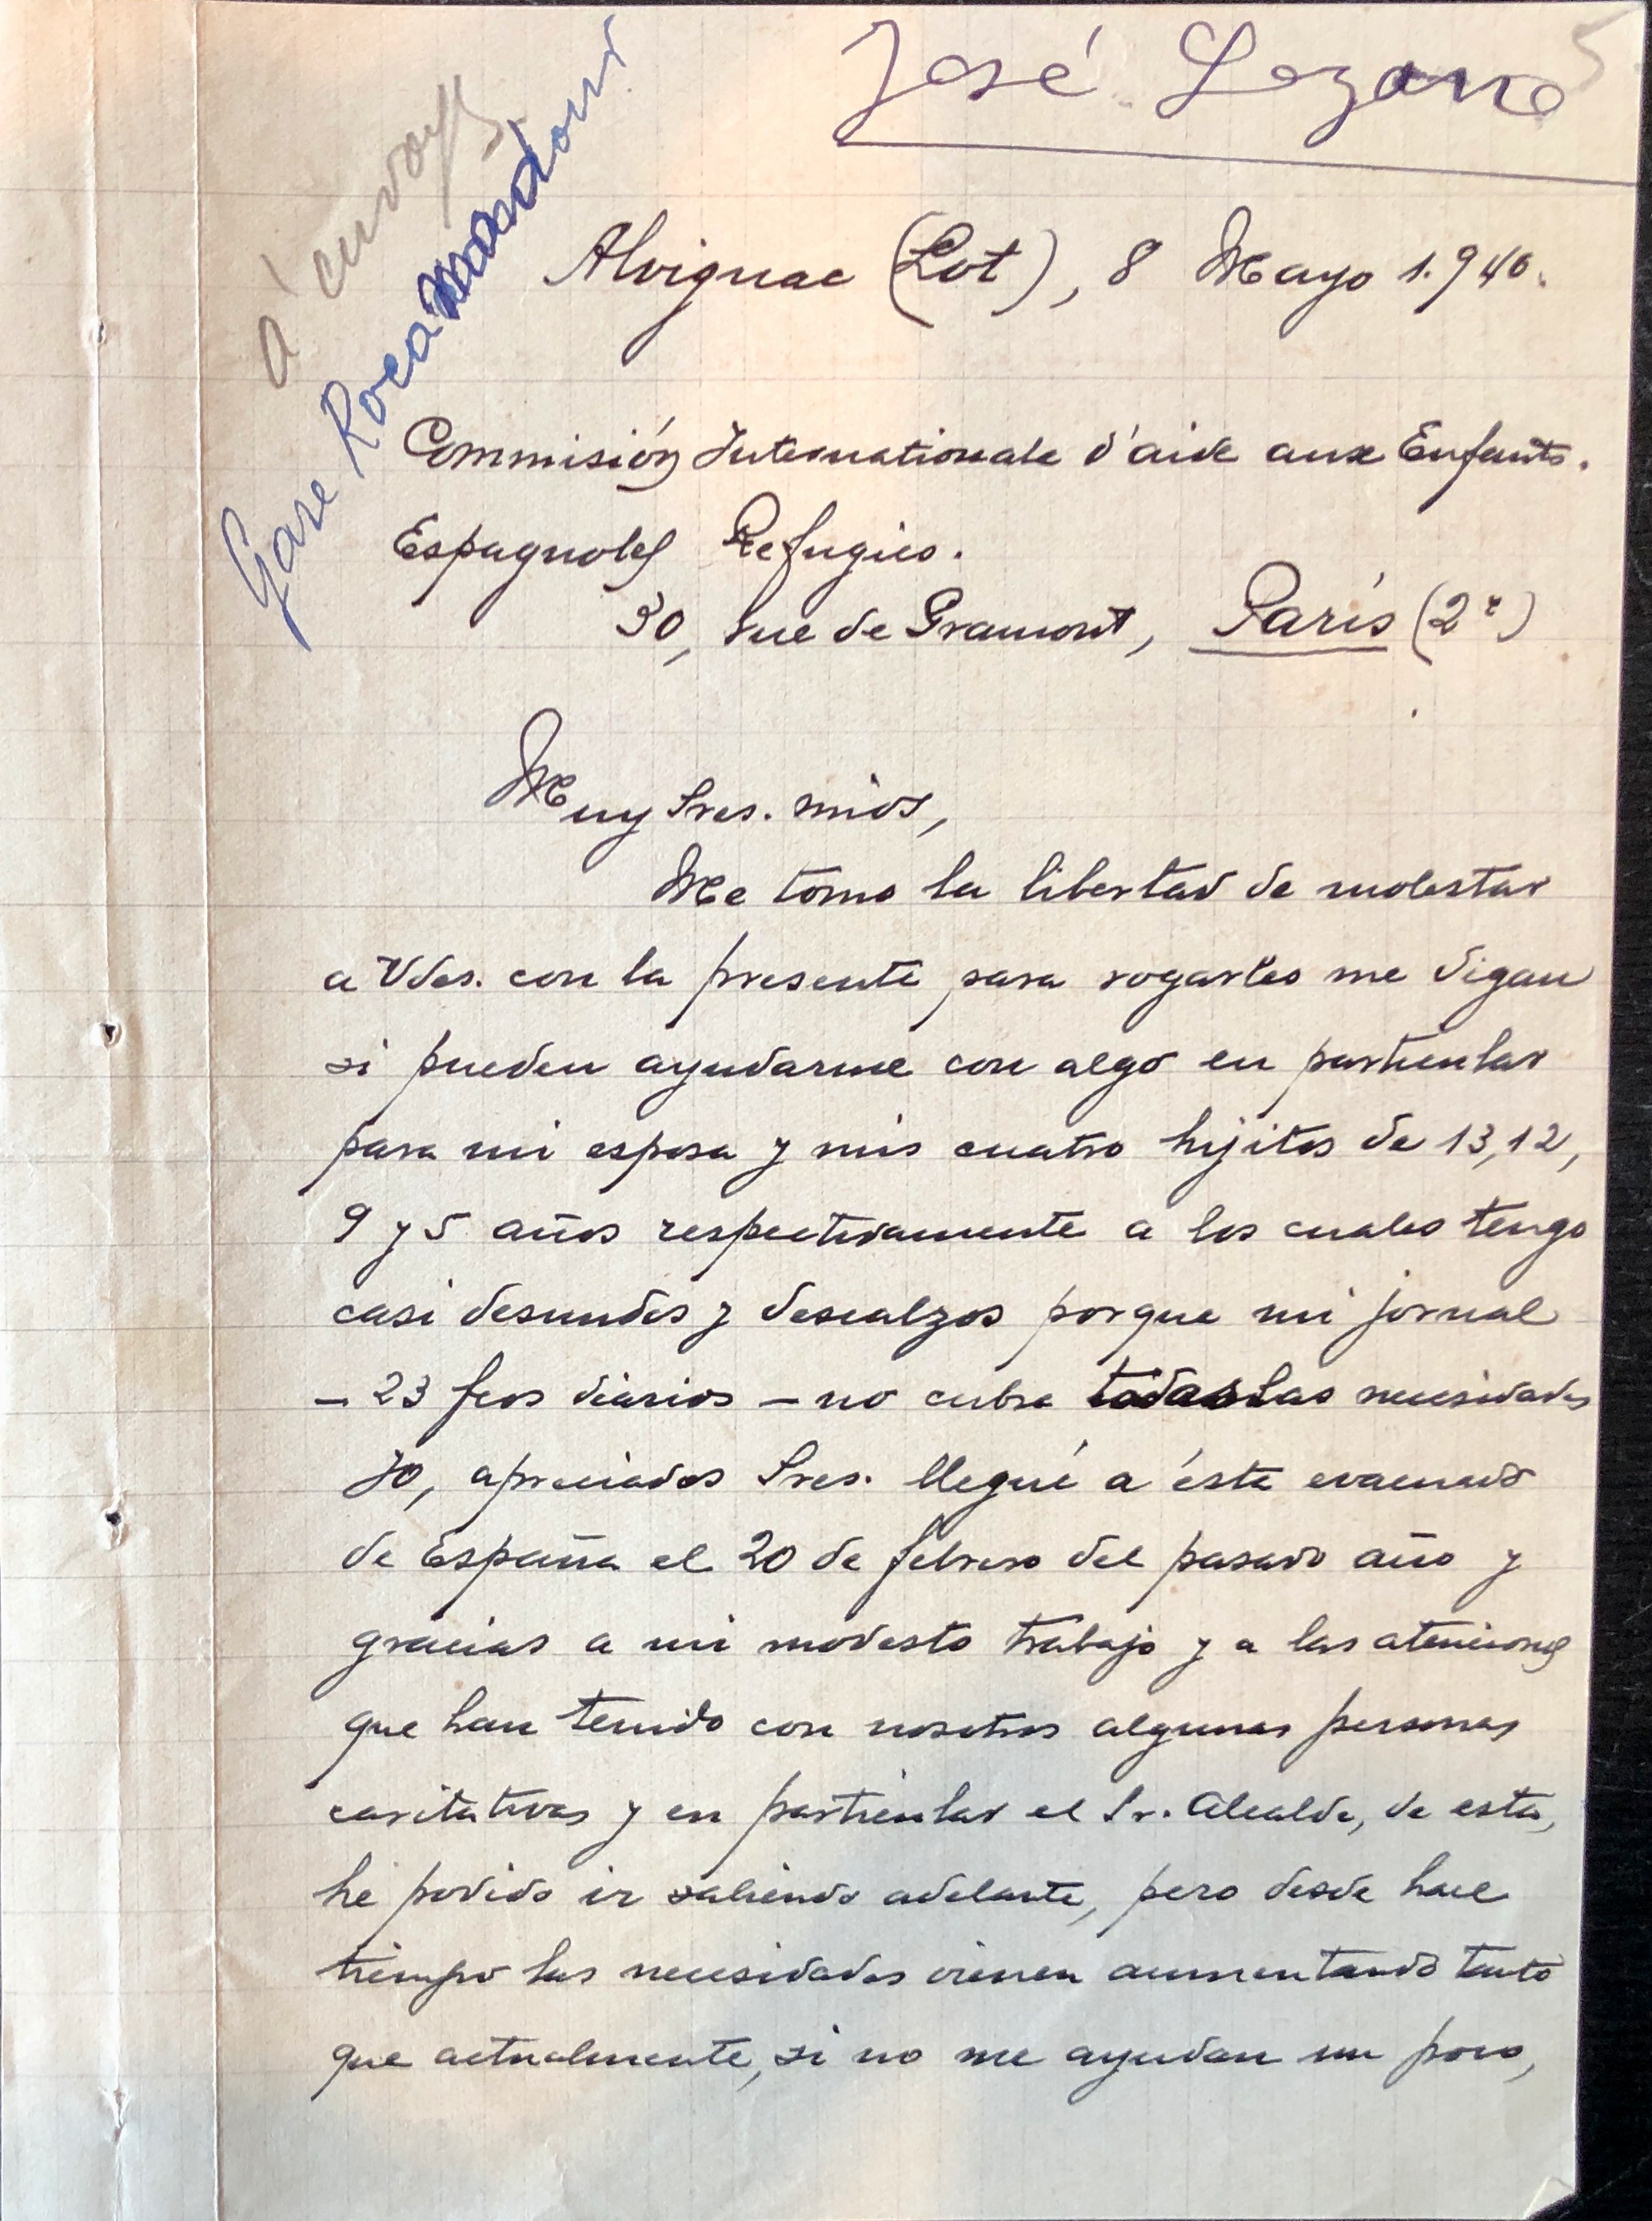 José Lozano
à envoyer
Gare Rocamadour
Alvignac (Lot), 8 Mayo 1.940.
Commisión Internationale d'aide aux Enfants.
Espagnoles Refugies.
30, rue de Gramont, París (2e)
Muy Sres. mios,
Me tomo la libertad de molestar
a Vdes. con la presente para rogarles me digan
si pueden ayudarme con algo en particular
para mi esposa y mis cuatro hijitos de 13, 12,
9 y 5 años respectivamente a los cuales tengo
casi desnudos y descalzos porque mi jornal
- 23 fcos diarios - no cubre todas las necesidades
Yo, apreciados Sres. llegué a ésta evacuado
de España el 20 de febrero del pasado año y
gracias a mi modesto trabajo y a las atenciones
que han tenido con nosotros algunas personas
caritativas y en particular el Sr. Alcalde, de esta,
he podido ir saliendo adelante, pero desde hace
tiempo las necesidades vienen aumentando tanto
que actualmente, si no me ayudan un poco,